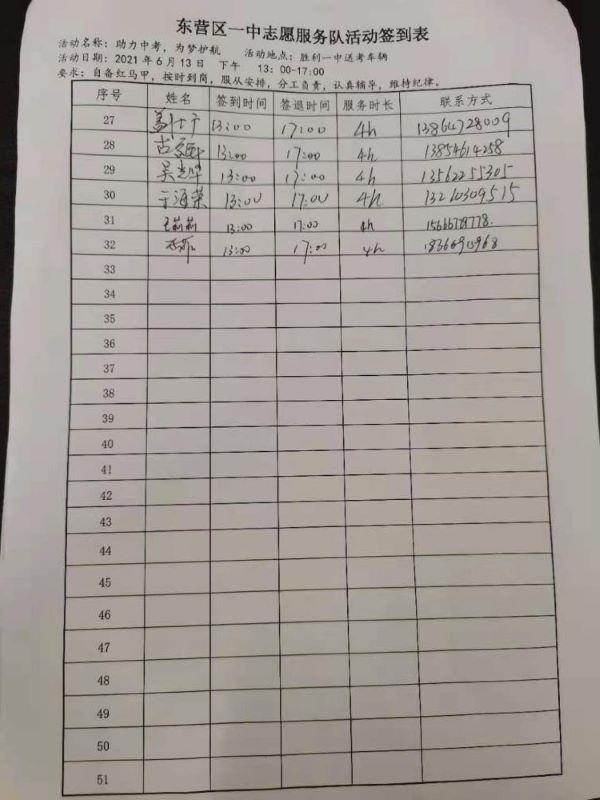 东营区一中志愿服务队活动签到表
活动名称：助力中考，为梦护航 活动地点：胜利一中送考车辆
活动日期：2021年6月13日 下午 13：00-17:00
要求：自备红马甲，按时到岗，服从安排，分工负责，认真辅导，维持纪律。
序号 姓名 签到时间 签退时间 服务时长 联系方式
27 13:00 17:00 4h 13864728009
28 13:00 17:00 4h 13854614258
29 13:00 17:00 4h 13562255305
30 于海荣 13:00 17:00 4h 13210309515
31 王莉莉 13:00 17:00 4h
32 13:00 17:00 4h
33
34
35
36
37
38
39
40
41
42
43
44
45
46
47
48
49
50
51